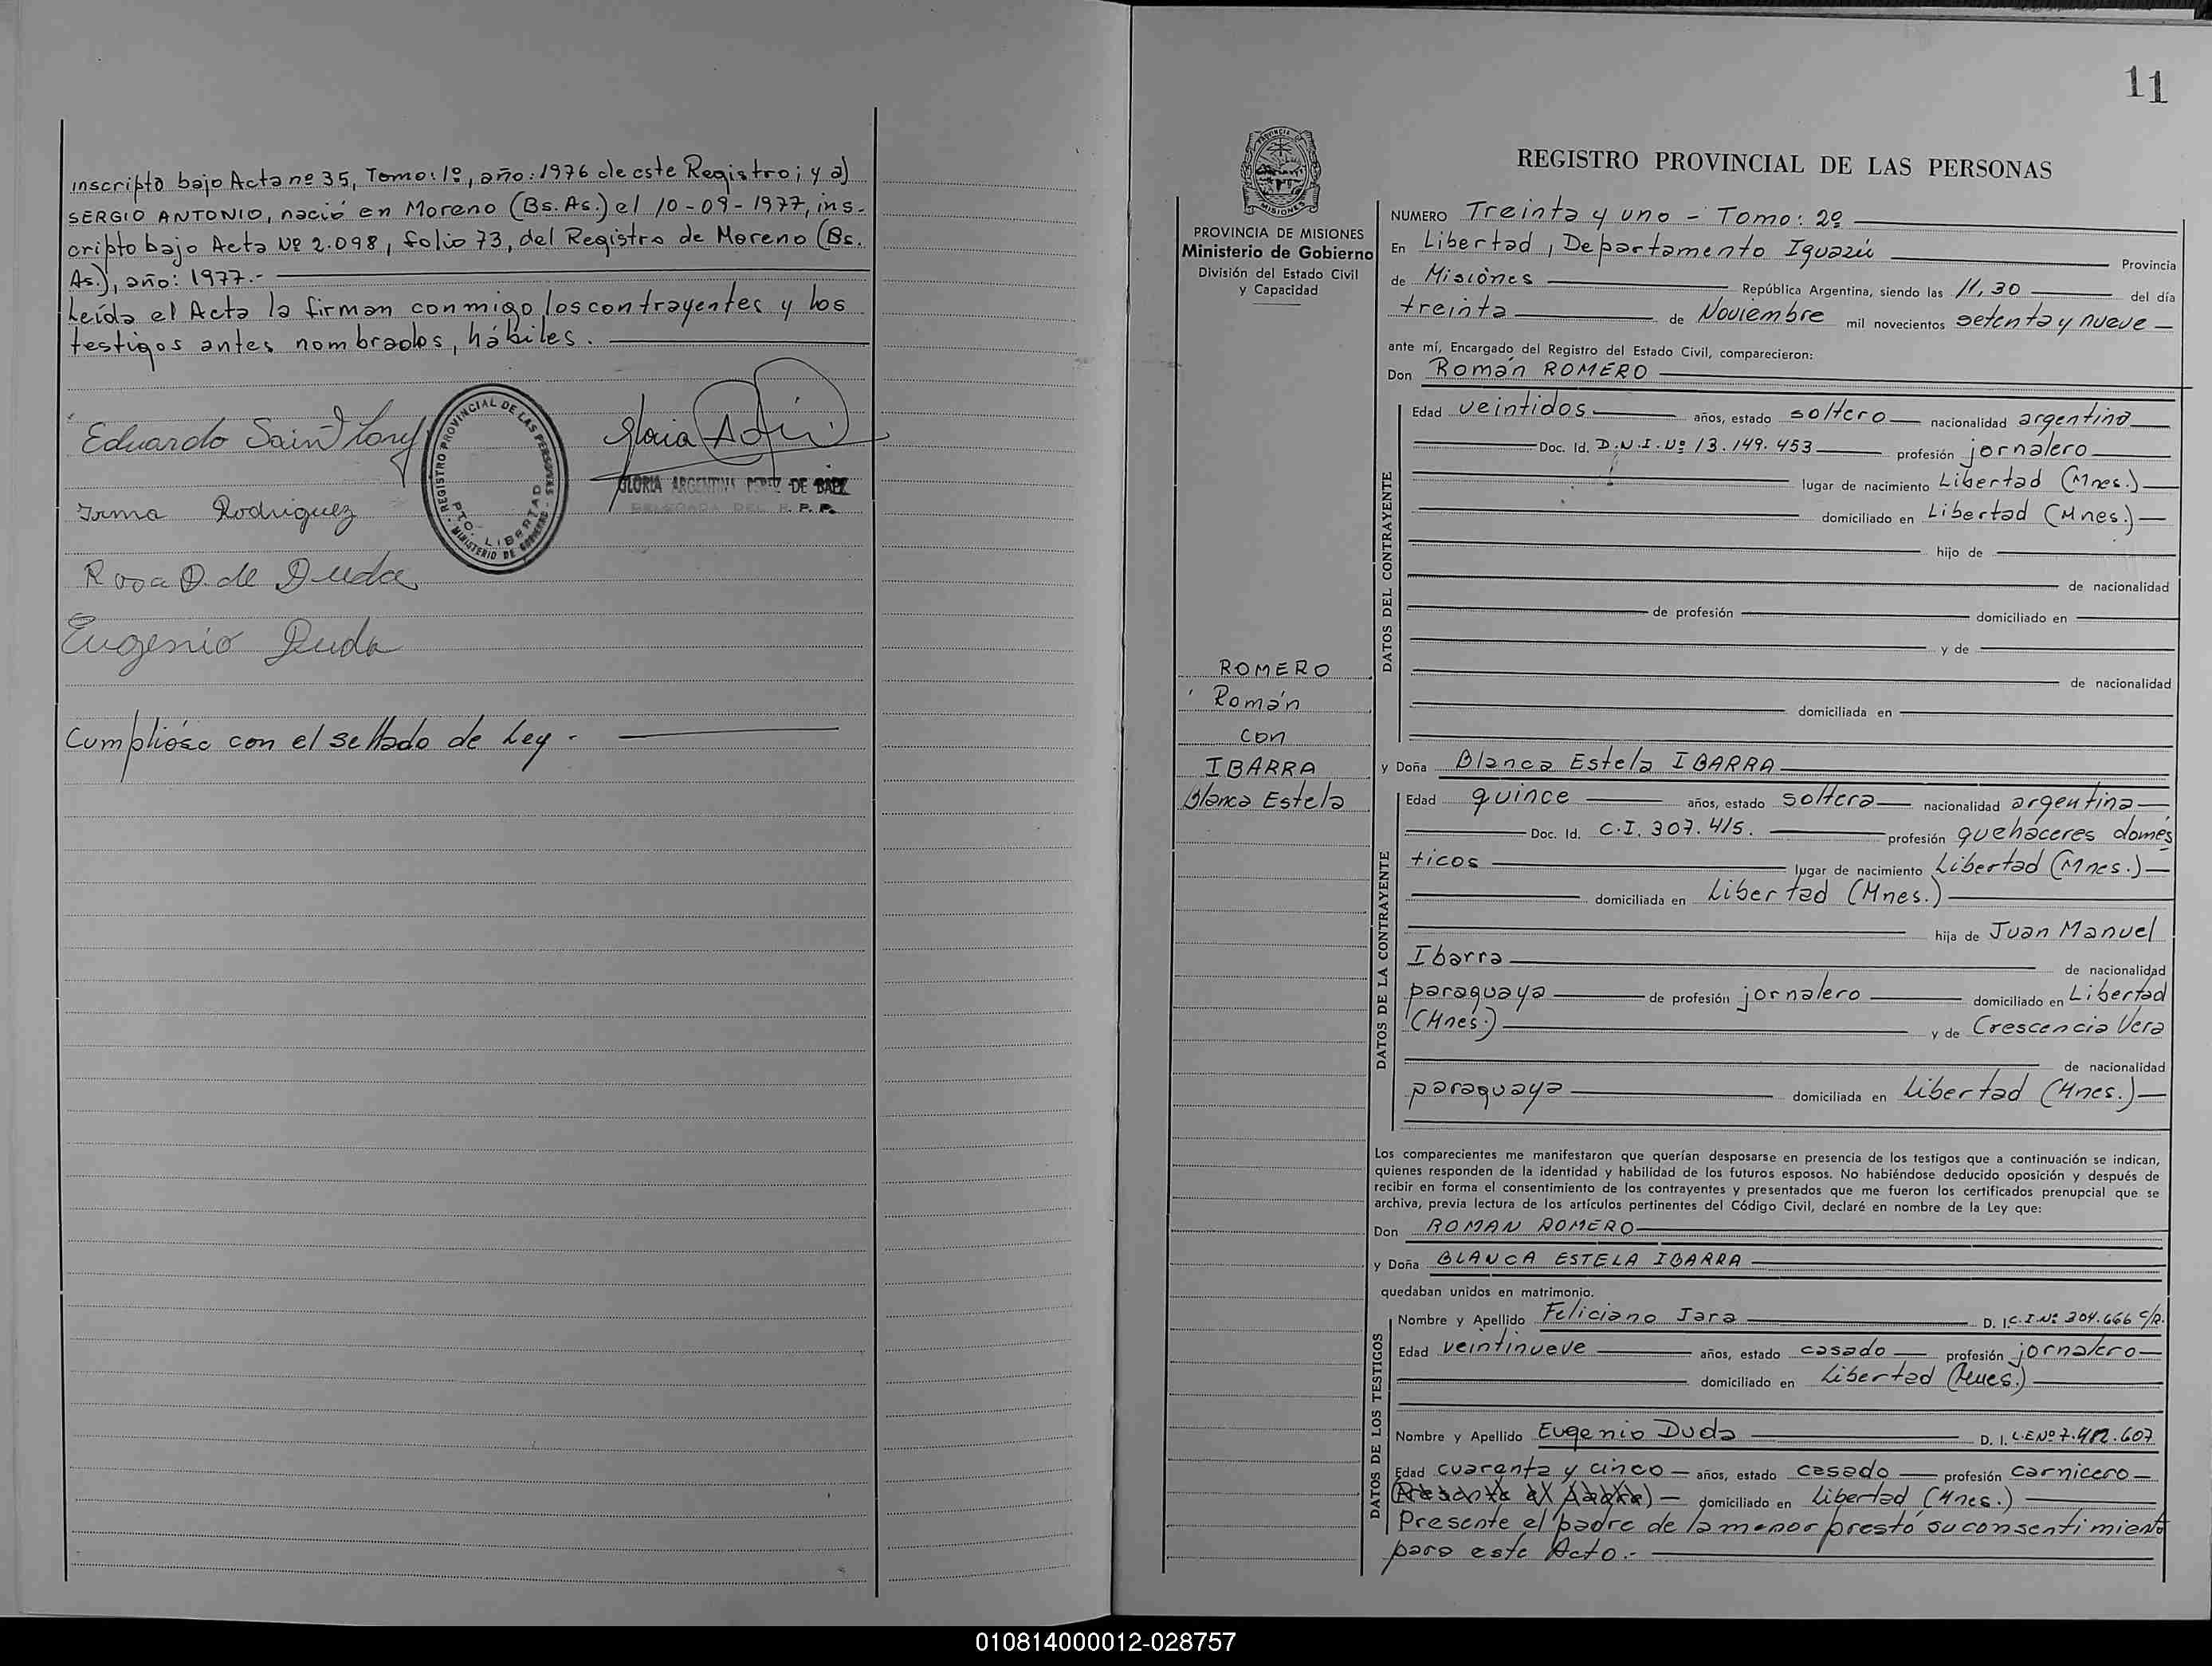 inscripto bajo Acta nº 35, Tomo: 1º, año: 1976 de este Registro; y a)
SERGIO ANTONIO, nació en Moreno (Bs. As.) el 10-09-1977, ins-
cripto bajo Acta Nº 2.098, folio 73, del Registro de Moreno (Bs.
As.), año: 1977.-
Leída el Acta la firman conmigo los contrayentes y los
testigos antes nombrados, hábiles.
Eduardo
Irma Rodriguez
Rosa D. de Duda
Eugenio Duda
REGISTRO PROVINCIAL DE LAS PERSONAS
PTO. LIBERTAD
MINISTERIO DE GOBIERNO
Gloria
GLORIA ARGENTINA PEREZ DE BAEZ
DELEGADA DEL R. P. P.
Cumplióse con el sellado de Ley -
11
PROVINCIA DE MISIONES
PROVINCIA DE MISIONES
Ministerio de Gobierno
División del Estado Civil
y Capacidad
ROMERO
Román
con
IBARRA
Blanca Estela
REGISTRO PROVINCIAL DE LAS PERSONAS
NUMERO Treinta y uno - Tomo: 2º
En Libertad, Departamento Iguazú Provincia
de Misiones República Argentina, siendo las 11,30 del día
treinta de Noviembre mil novecientos setenta y nueve
ante mí, Encargado del Registro del Estado Civil, comparecieron:
Don Román ROMERO
DATOS DEL CONTRAYENTE
Edad veintidos años, estado soltero nacionalidad argentina
Doc. Id. D.N.I. Nº 13.149.453 profesión jornalero
lugar de nacimiento Libertad (Mnes.)
domiciliado en Libertad (Mnes.)
hijo de
de nacionalidad
de profesión domiciliado en
y de
de nacionalidad
domiciliada en
y Doña Blanca Estela IBARRA
DATOS DE LA CONTRAYENTE
Edad quince años, estado soltera nacionalidad argentina
Doc. Id. C.I. 307.415. profesión quehaceres domés
ticos lugar de nacimiento Libertad (Mnes.)
domiciliada en Libertad (Mnes.)
hija de Juan Manuel
Ibarra de nacionalidad
paraguaya de profesión jornalero domiciliado en Libertad
(Mnes.) y de Crescencia Vera
de nacionalidad
paraguaya domiciliada en Libertad (Mnes.)
Los comparecientes me manifestaron que querían desposarse en presencia de los testigos que a continuación se indican,
quienes responden de la identidad y habilidad de los futuros esposos. No habiéndose deducido oposición y después de
recibir en forma el consentimiento de los contrayentes y presentados que me fueron los certificados prenupcial que se
archiva, previa lectura de los artículos pertinentes del Código Civil, declaré en nombre de la Ley que:
Don ROMAN ROMERO
y Doña BLANCA ESTELA IBARRA
quedaban unidos en matrimonio.
DATOS DE LOS TESTIGOS
Nombre y Apellido Feliciano Jara D. I. C.I. Nº 304.666 C/R.
Edad veintinueve años, estado casado profesión jornalero
domiciliado en Libertad (Mnes.)
Nombre y Apellido Eugenio Duda D. I. L.E Nº 7.482.607
Edad cuarenta y cinco años, estado casado profesión carnicero
domiciliado en Libertad (Mnes.)
Presente el padre de la menor prestó su consentimiento
para este Acto.-
010814000012-028757